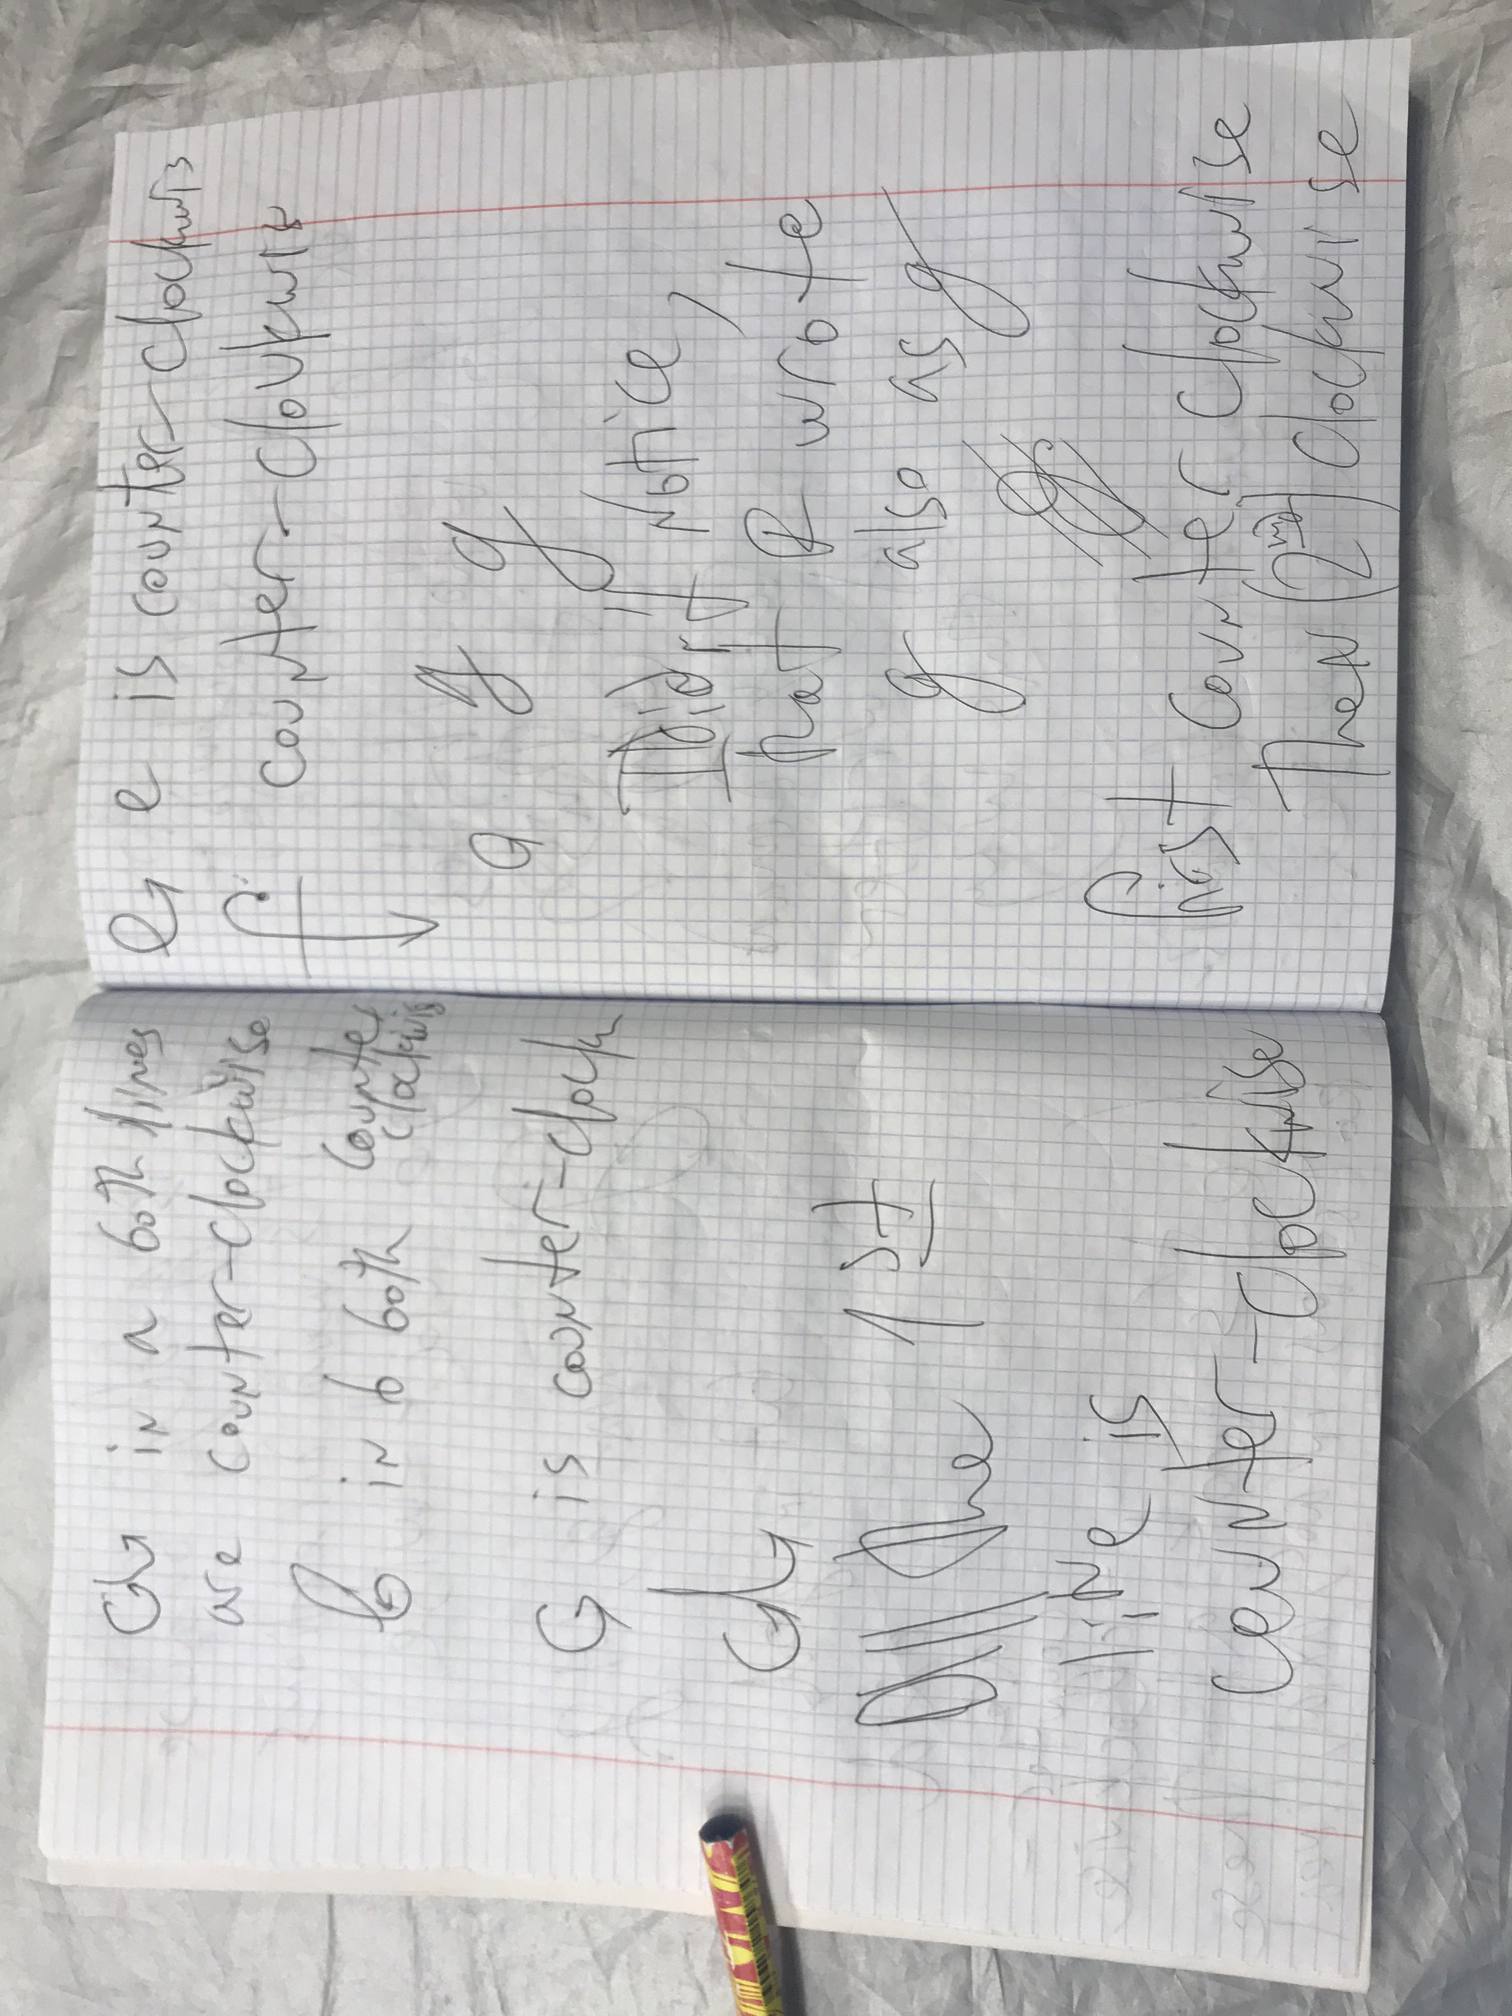 G in a both lines
are counter-clockwise
6 in b both counter
clockwis
G is counter-clock
G
the 1st
line is
counter-clockwise
e is counter-clockwis
counter-cloukwis
g g g
I did'nt notice,
that I wrote
g also as g
first counter clockwise
Then (2nd) clockwise